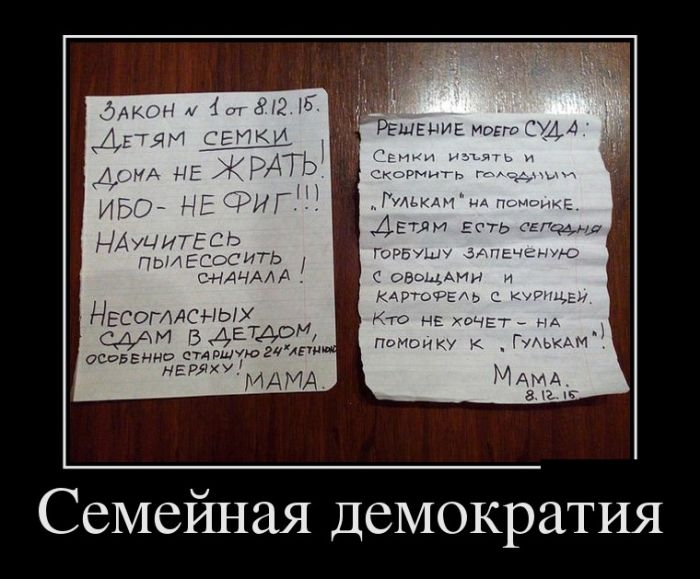 ЗАКОН № 1 от 8.12.15.
ДЕТЯМ СЕМКИ
ДОМА НЕ ЖРАТЬ!
ИБО - НЕ ФИГ!!!
НАУЧИТЕСЬ
ПЫЛЕСОСИТЬ
СНАЧАЛА!
НЕСОГЛАСНЫХ
СДАМ В ДЕТДОМ,
ОСОБЕННО СТАРШУЮ 24ˣЛЕТНЮЮ
НЕРЯХУ!
МАМА.
РЕШЕНИЕ МОЕГО СУДА:
СЕМКИ ИЗЪЯТЬ И
СКОРМИТЬ ГОЛОДНЫМ
„ГУЛЬКАМ" НА ПОМОЙКЕ.
ДЕТЯМ ЕСТЬ СЕГОДНЯ
ГОРБУШУ ЗАПЕЧЁНУЮ
С ОВОЩАМИ И
КАРТОФЕЛЬ С КУРИЦЕЙ.
КТО НЕ ХОЧЕТ - НА
ПОМОЙКУ К „ГУЛЬКАМ"!
МАМА.
8.12.15
Семейная демократия